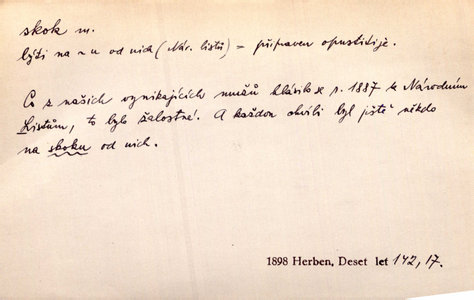 skok m.
býti na ~ u od nich (Nár. listů) = připraven opustiti je.
Co z našich vynikajících mužů hlásilo se r. 1887 k Národním
Listům, to bylo žalostné. A každou chvíli byl ještě někdo
na skoku od nich.
1898 Herben, Deset let 142, 17.